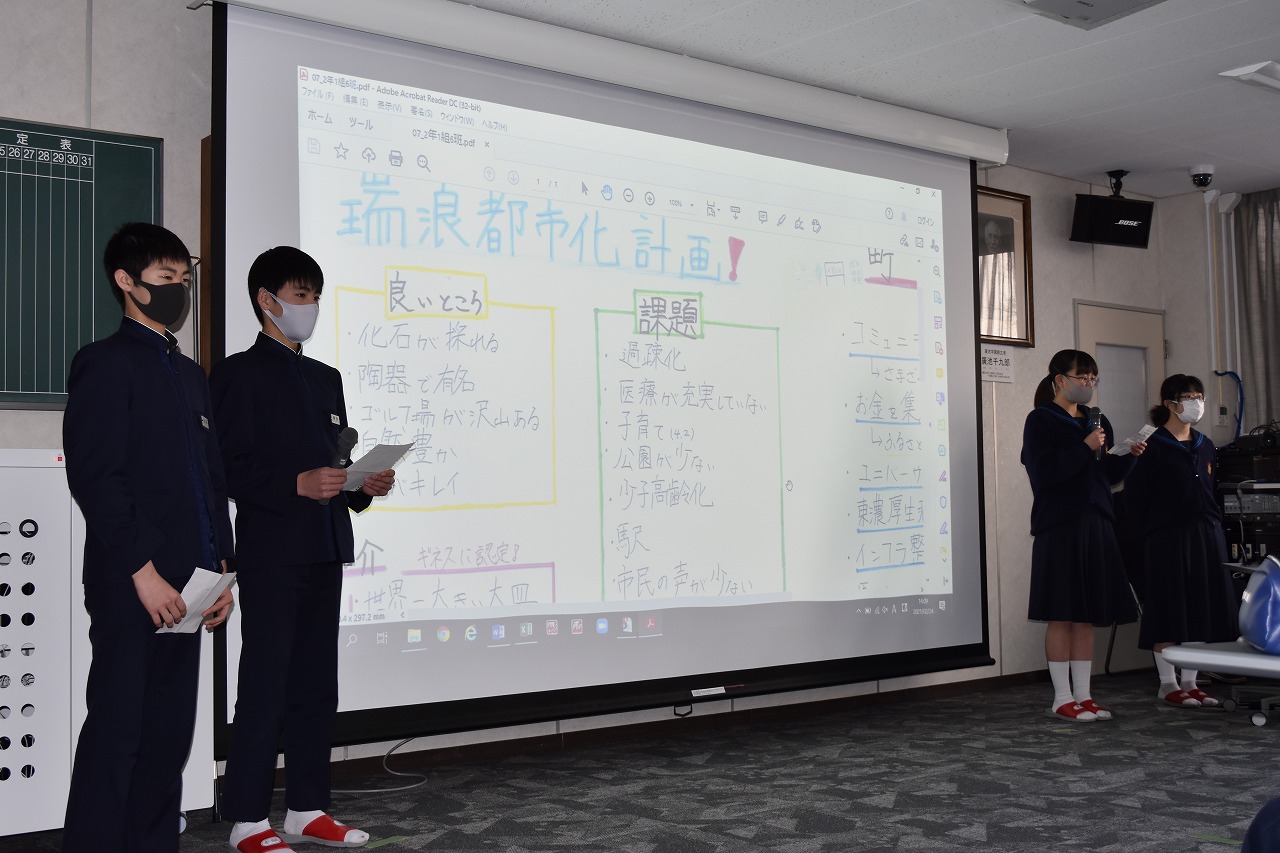 定 表
26 27 28 29 30 31
07_2年1組6班.pdf - Adobe Acrobat Reader DC (32-bit)
ファイル(F) 編集(E) 表示(V) 署名(S) ウィンドウ(W) ヘルプ(H)
ホーム ツール
07_2年1組6班.pdf ×
1 / 1
100%
ログイン
瑞浪都市化計画!
良いところ
・化石が採れる
・陶器で有名
・ゴルフ場が沢山ある
自然豊か
キレイ
介 ギネスに認定!
・世界一大きい大皿
297.2 mm
課題
・過疎化
・医療が充実していない
・子育て(4.2)
・公園が少ない
・少子高齢化
・駅沢
・市民の声が少ない
町
・コミュニ
↳さまざ
・お金を集
↳ふるさと
・ユニバーサ
・東濃厚生
・インフラ整
BOSE
廣池千九郎